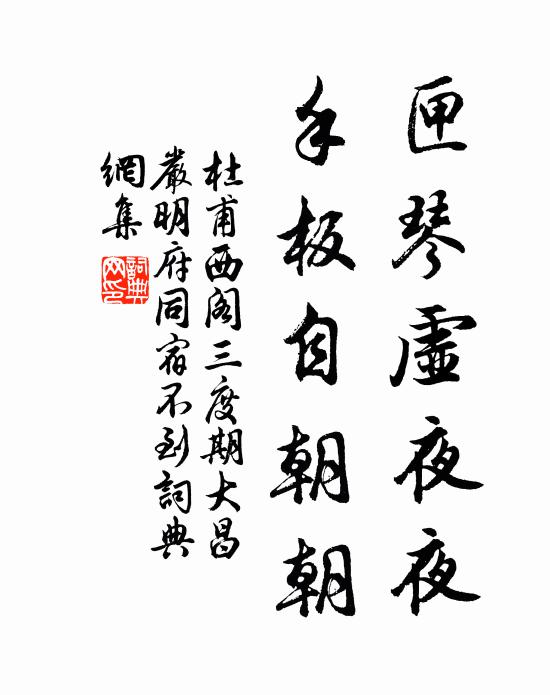 匣琴虛夜夜
手板自朝朝
杜甫西阁三度期大昌
嚴明府同宿不到詞典
網集
詞典
网印